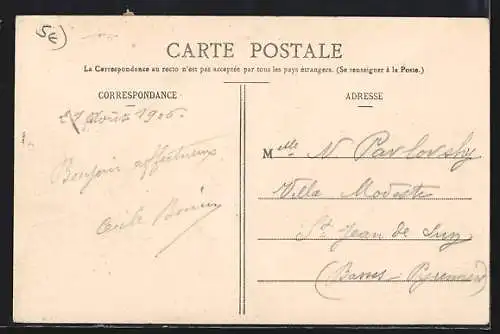 5E)
CARTE POSTALE
La Correspondance au recto n'est pas acceptée par tous les pays étrangers. (Se renseigner à la Poste.)
CORRESPONDANCE
27 Août 1906.
Bonjour affectueux
Cécile
ADRESSE
Melle N Pavlovsky
Villa Modeste
St Jean de Luz
(Basses-Pyrénées)